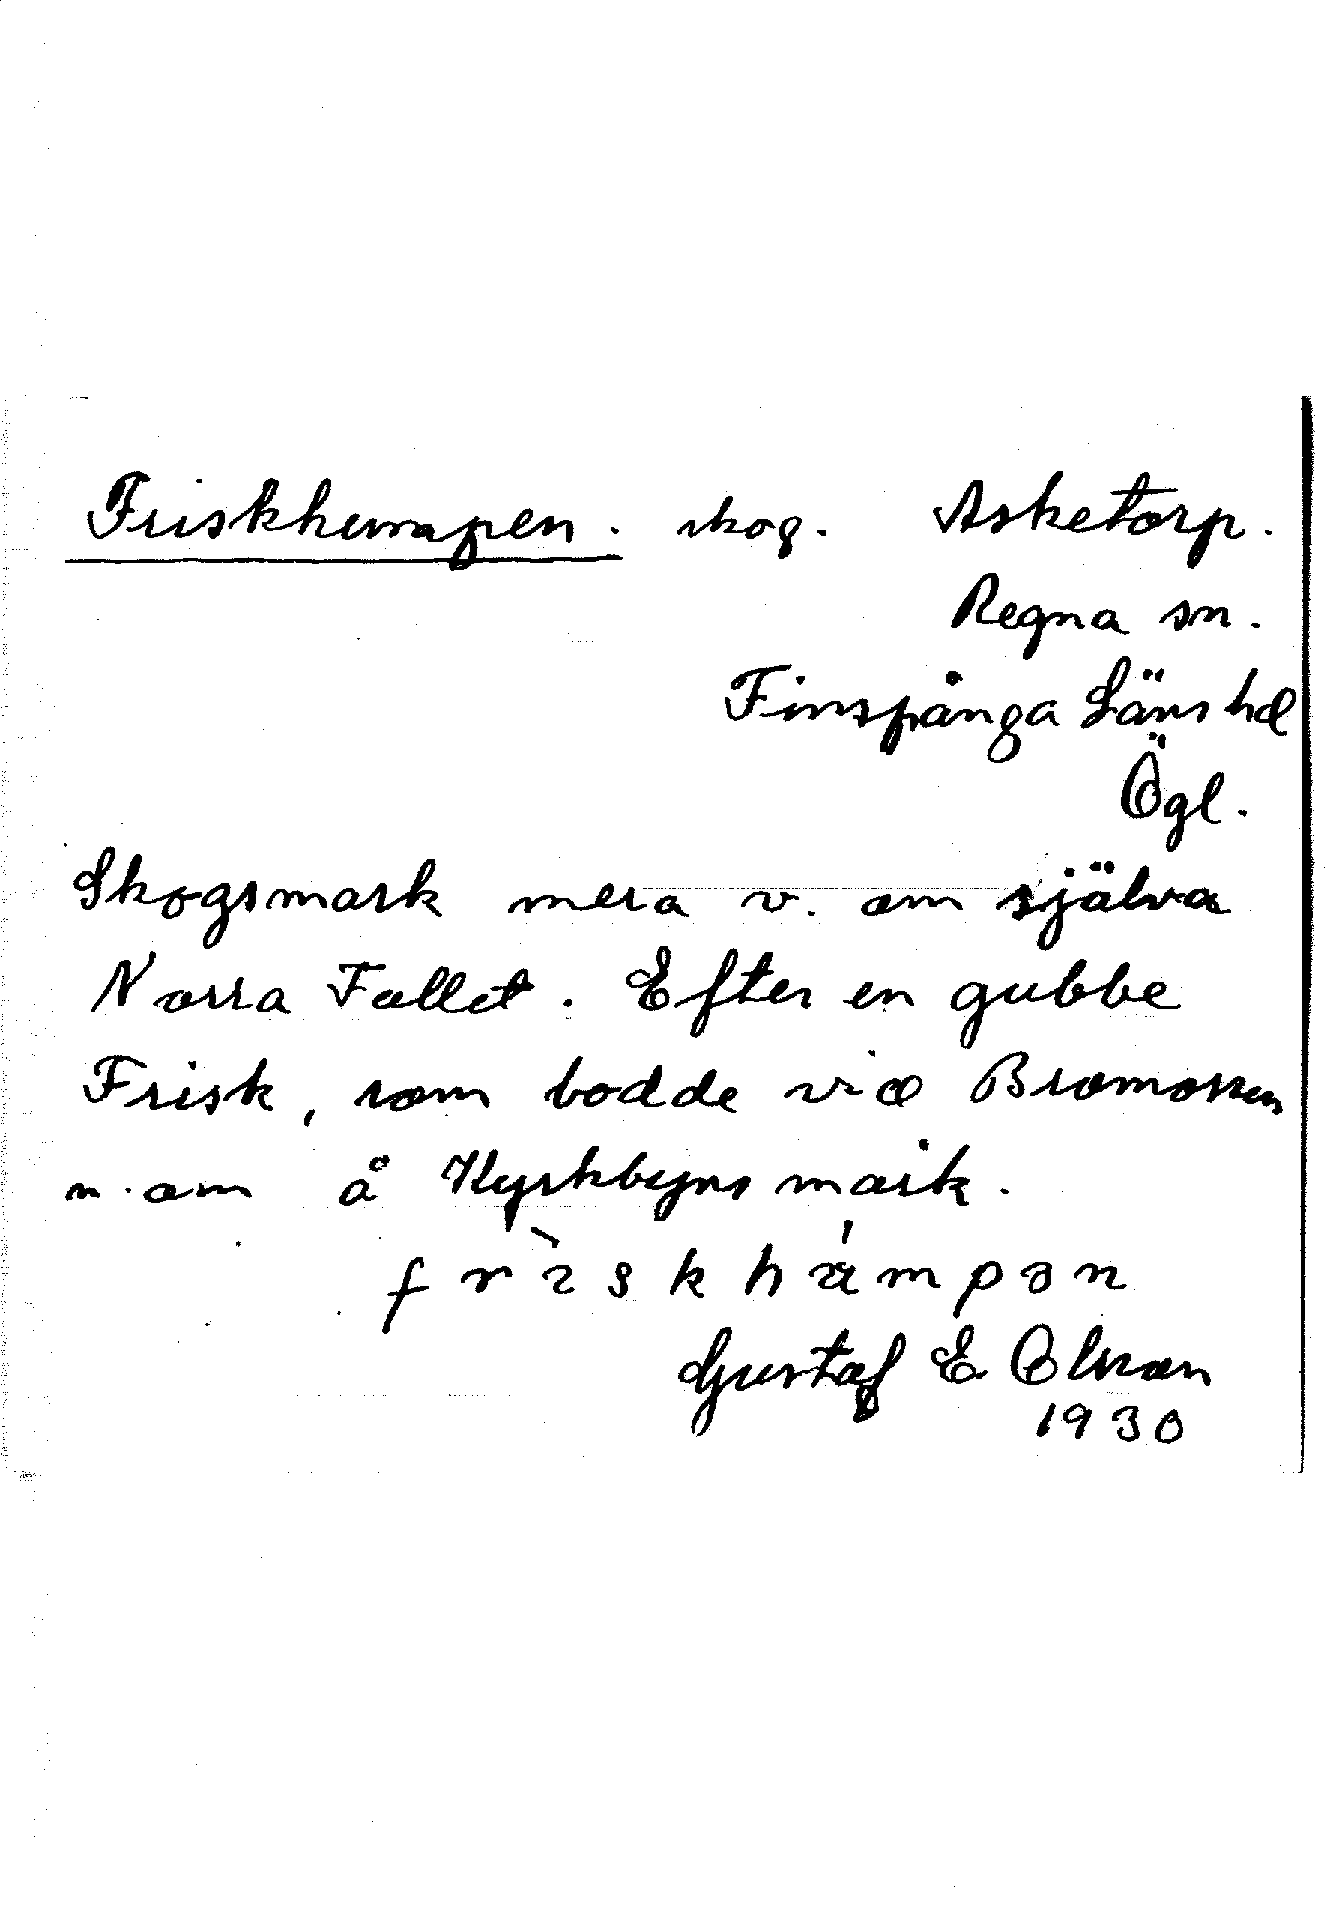 Friskhempen. skog. Asketorp.
Regna sn.
Finspånga Läns hd
Ögl.
Skogsmark mera v. om själva
Norra Fallet. Efter en gubbe
Frisk, som bodde vid Bromossen
n. om å Kyrkbyns mark.
frìskhä́mpən
Gustaf E Olsson
1930